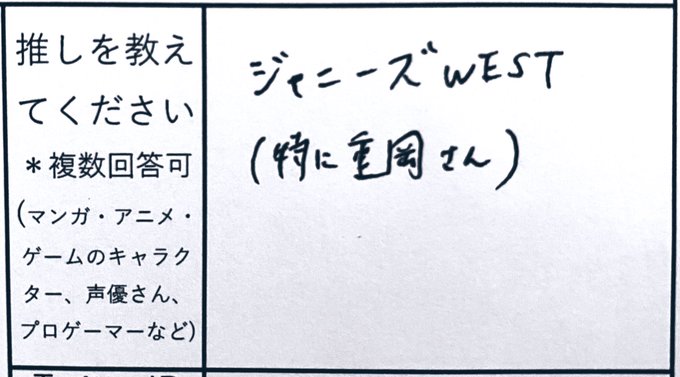 推しを教え
てください
＊複数回答可
(マンガ・アニメ・
ゲームのキャラク
ター、声優さん、
プロゲーマーなど)
ジャニーズWEST
(特に重岡さん)